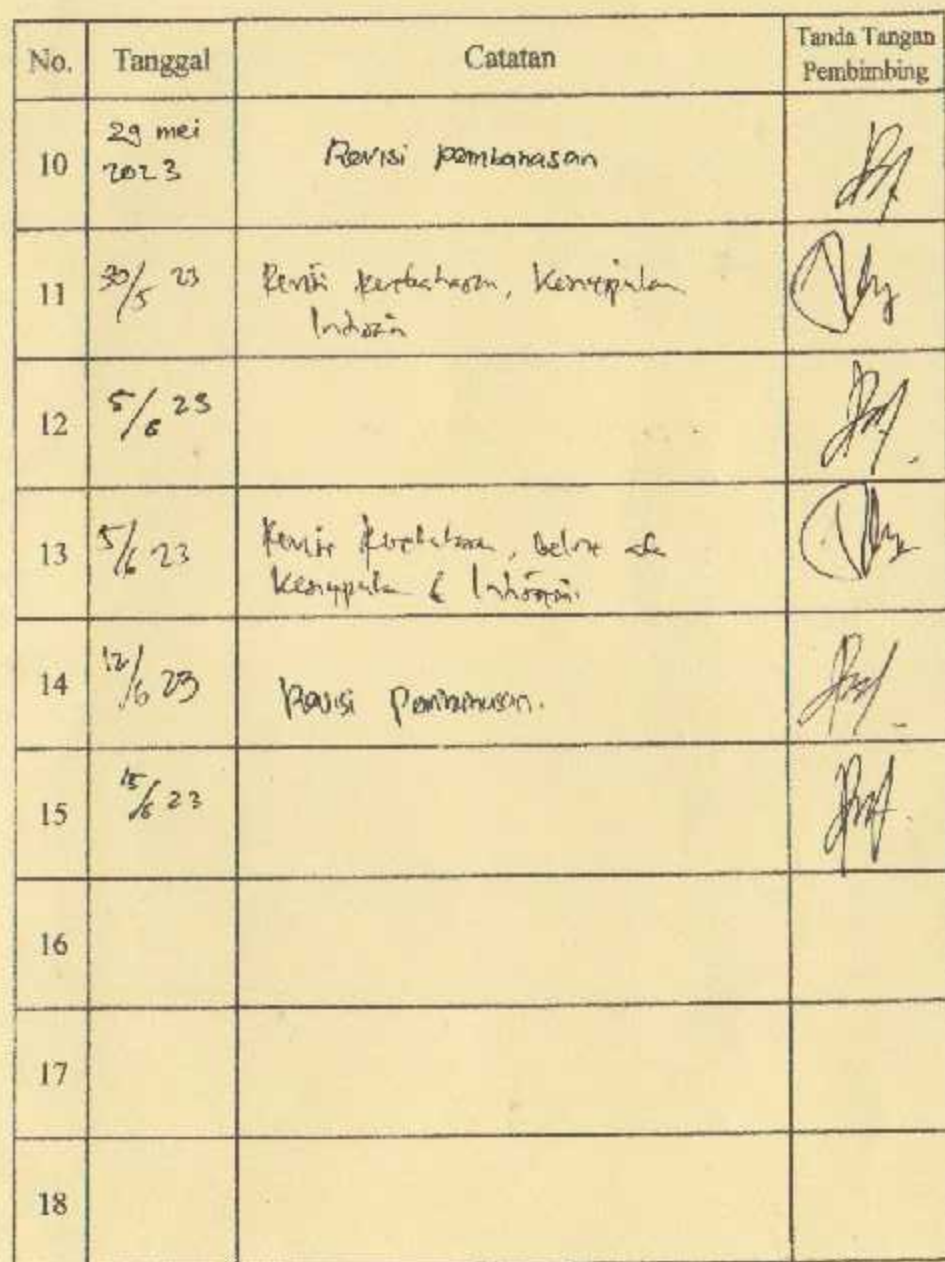 No. Tanggal Catatan Tanda Tangan
Pembimbing
10 29 mei
2023 Revisi pembahasan
11 30/5 23 Revisi pembahasan, Kesimpulan
12 5/6 23
13 5/6 23 Revisi pembahasan, belum ada
Kesimpulan &
14 12/6 23 Revisi Pembahasan.
15 15/6 23
16
17
18